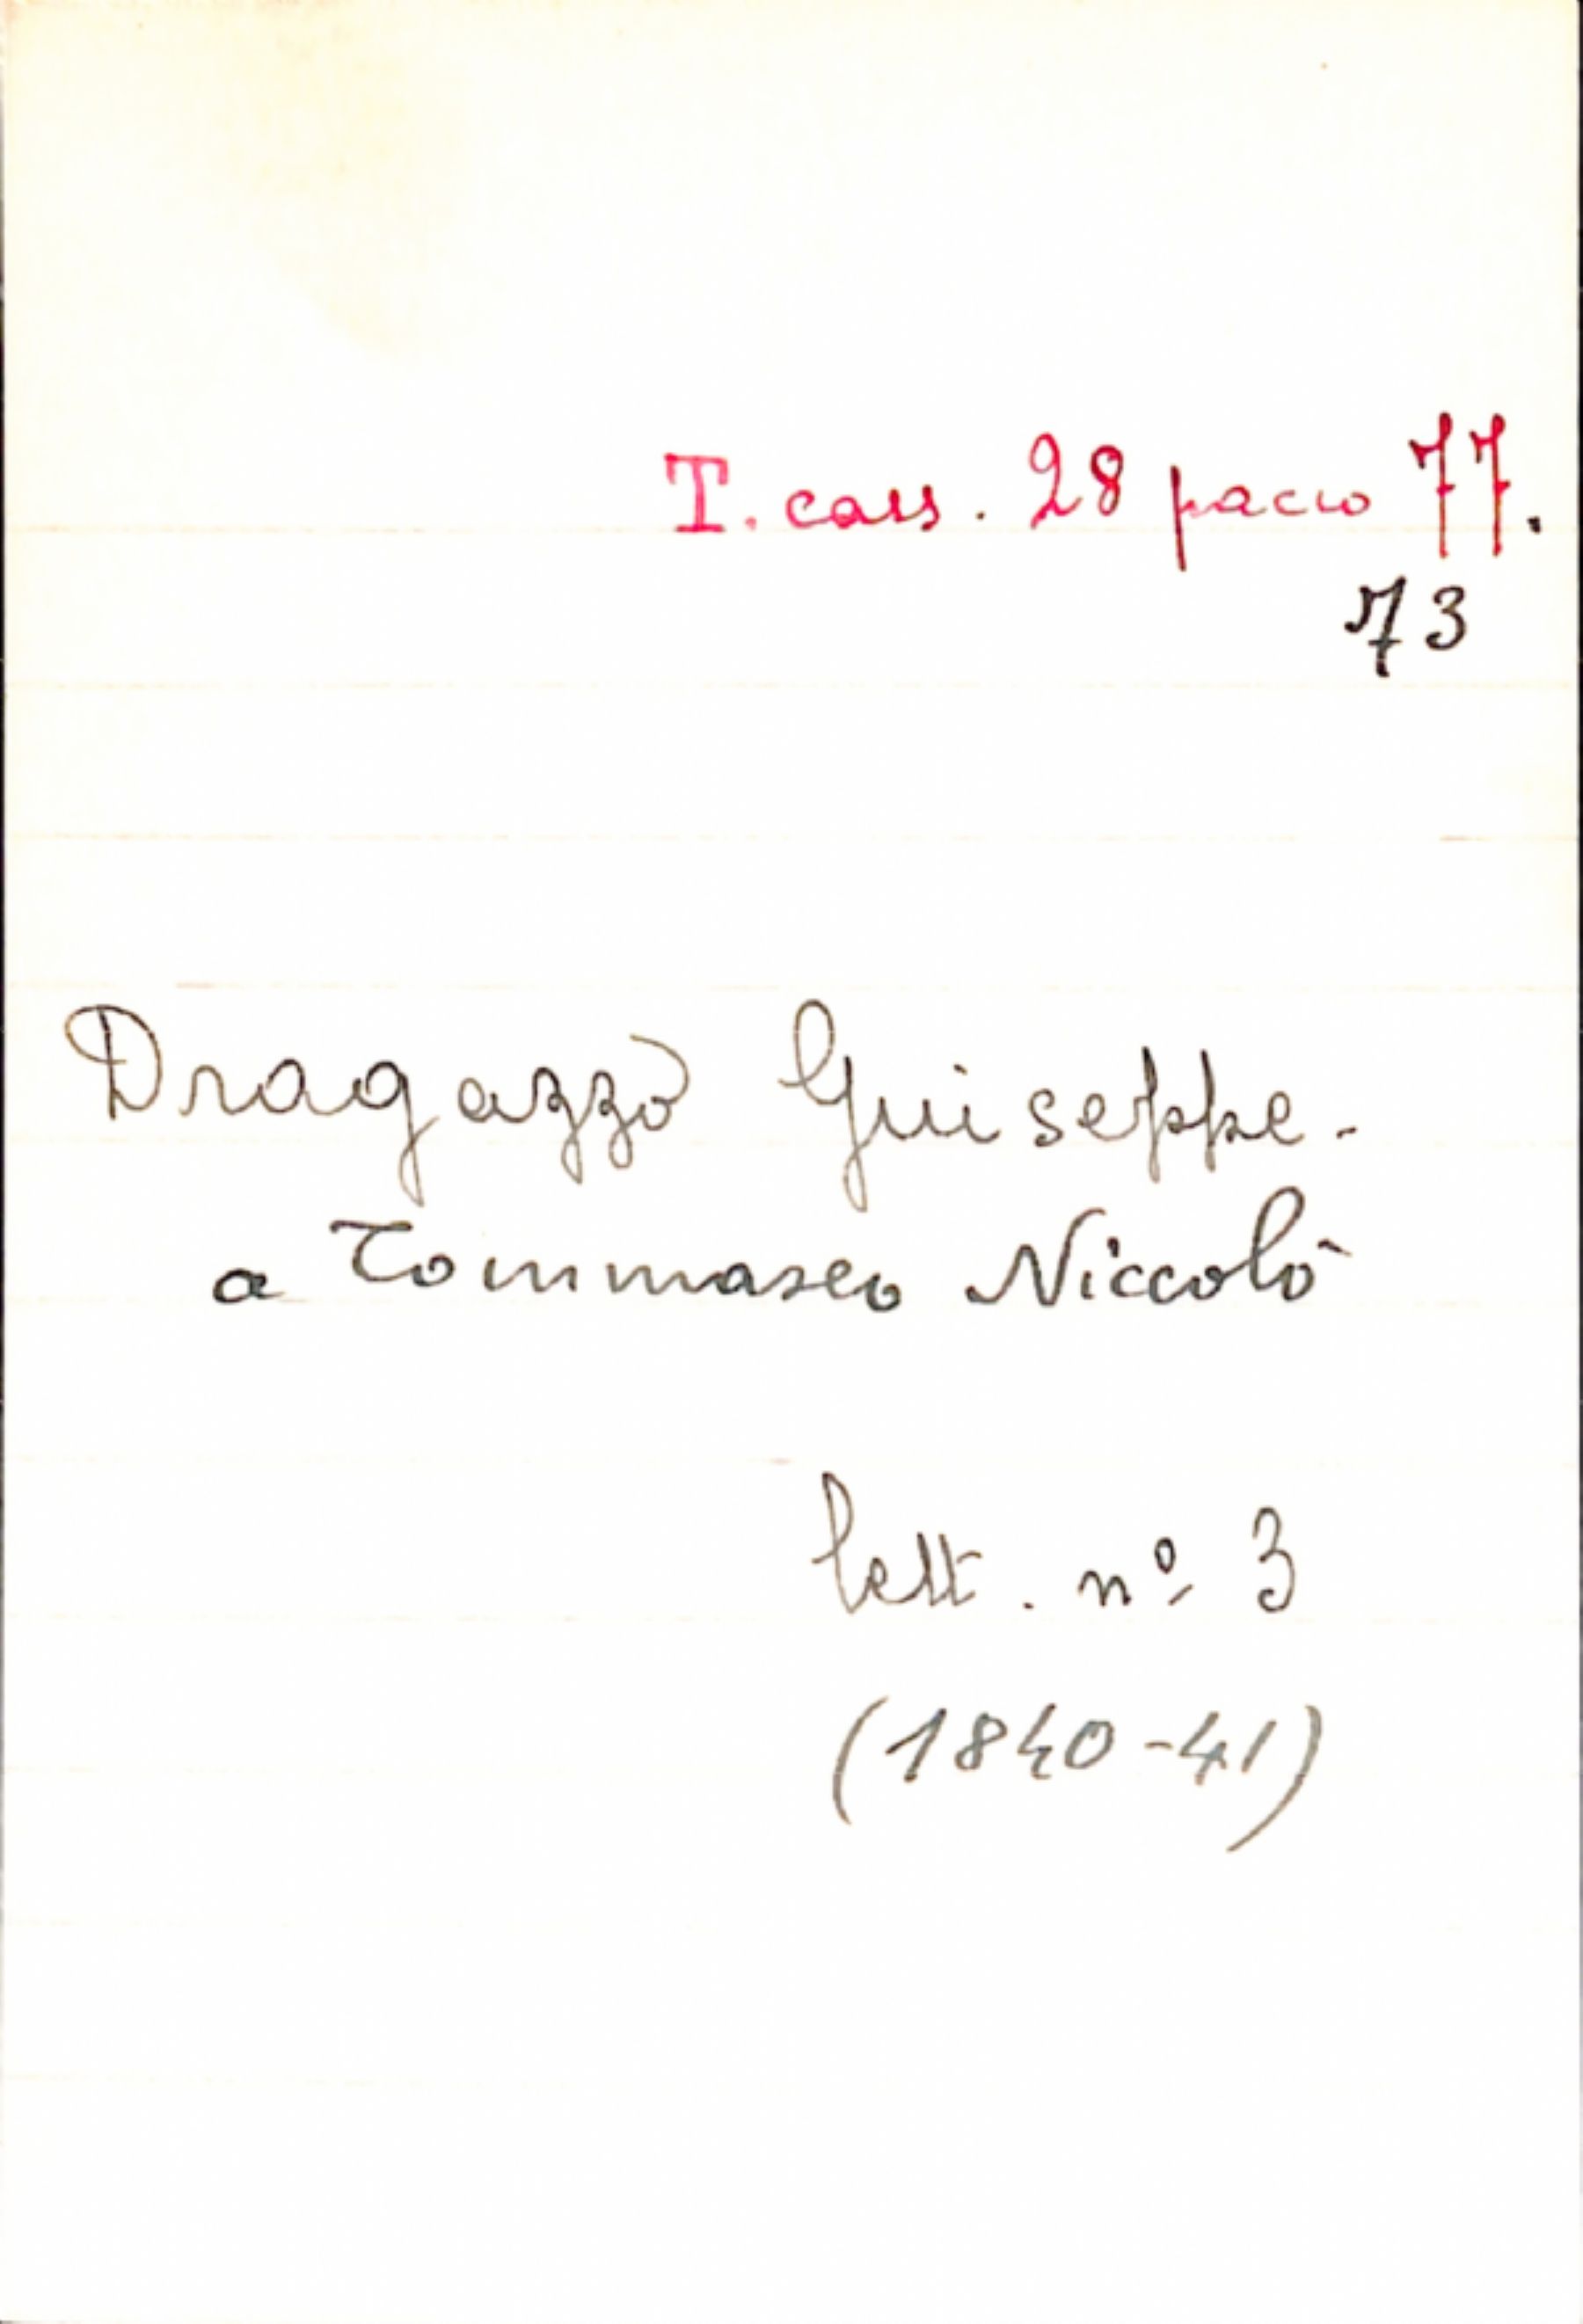 T. cass. 28 pacco 77.
73
Dragazzo Giuseppe.
a Tommaseo Niccolò
lett. nº 3
(1840-41)